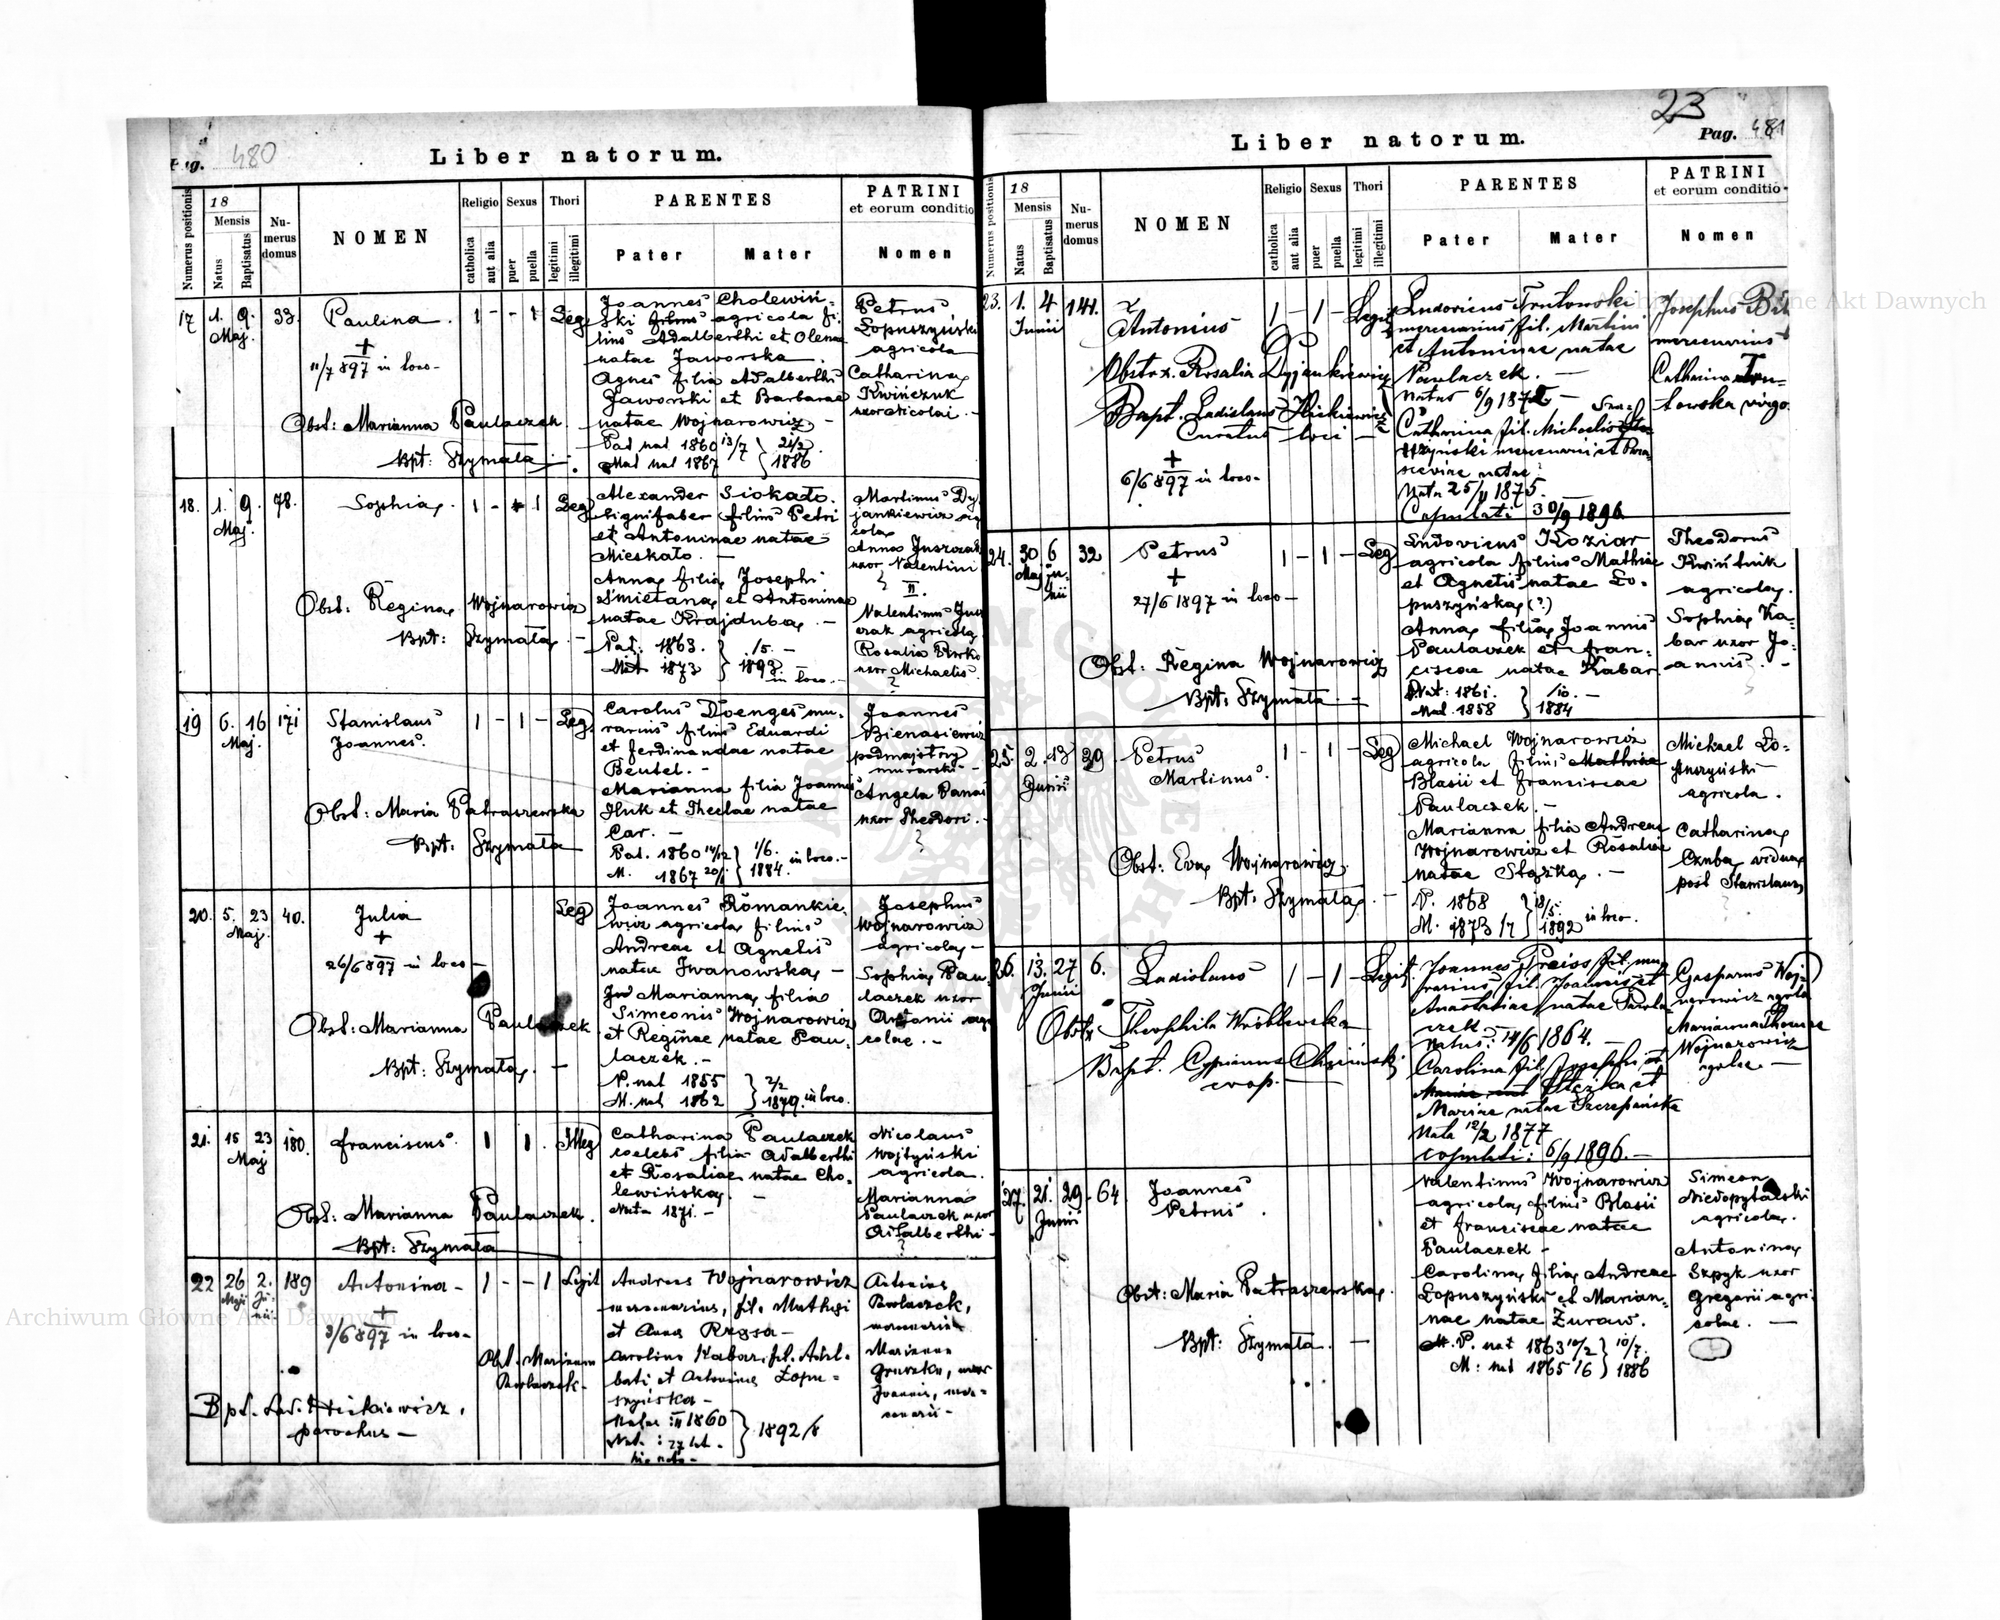 Pag. 480
Liber natorum.
Numerus positionis
18
Mensis
Natus
Baptisatus
Numerus domus
NOMEN
Religio
catholica
aut alia
Sexus
puer
puella
Thori
legitimi
illegitimi
PARENTES
Pater
Mater
PATRINI
et eorum conditio
Nomen
17 1. 9. Maj. 33. Paulina. 1 - - 1 Leg
+
11/7 897 in loco-
Obst: Marianna Paulaczek.
Bpt: Szymala
Joannes Cholewiń-
ski filius agricola fi-
lius Adalberthi et Olena
natae Jaworska.
Agnes filia Adalberthi
Jaworski et Barbarae
natae Wojnarowicz -
Pat nat 1860 13/7
Mat nat 1867
21/2 1886
Petrus
Łopuszyński
agricola
Catharina
Kwińczuk
uxor Nicolai. -
18. 1. 9. Maj. 78. Sophia. 1 - 1 Leg
Obst: Regina Wojnarowicz
Bpt: Szymala. -
Alexander Siokało.
lignifaber filius Petri
et Antoninae natae
Mieskało. -
Anna filia Josephi
Śmietana et Antoninae
natae Krajduba. -
Pat: 1863.
Mat 1873
/5. - 1893 in loco. -
Martinus Dy
jankiewicz agri
cola
Anna Juszczak
uxor Valentini
II.
Valentinus Jusz
czak agricola
Rosalia
uxor Michaelis
?
19 6. 16 Maj. 171 Stanislaus
Joannes. 1 - 1 - Leg.
Obst: Maria Patraszewska
Bpt: Szymala
Carolus Doenges mu-
rarius filius Eduardi
et Ferdinandae natae
Beutel. -
Marianna filia Joannis
Huk et Theclae natae
Car. -
Pat. 1860 14/12
M. 1867 20/1
1/6. 1884. in loco. -
Joannes
Bienasiewicz
podmajstrzy
murarski. -
Angela Panas
uxor Theodori. -
?
20. 5. 23 Maj. 40. Julia Leg
+
26/6 897 in loco -
Obst: Marianna Paulaczek
Bpt: Szymala. -
Joannes Romankie-
wicz agricola filius
Andreae et Agnetis
natae Iwanowska, -
Marianna, filia
Simeonis Wojnarowicz
et Reginae natae Pau-
laczek. -
P. nat 1855
M. nat 1862
2/2 1879. in loco.
Josephus
Wojnarowicz
agricola -
Sophia Pau-
laczek uxor
Antonii agri
colae. -
21. 15 23 Maj 180. Franciscus. 1 1. Illeg
Obst: Marianna Paulaczek.
Bpt: Szymala
Catharina Paulaczek
coelebs filia Adalberthi
et Rosaliae natae Cho-
lewińska. -
Nata 1871. -
Nicolaus
Wojtyński
agricola.
Marianna
Paulaczek uxor
Adalberthi -
?
22 26 Maji 2. Junii 189 Antonina - 1 - - 1 Legit
+
3/6 897 in loco-
Obst. Marianna
Pawlaczek-
Bpt. Lad. Hickiewicz,
parochus -
Andreas Wojnarowicz
mercenarius, fil. Mathiei
et Anna Rzęsa -
Carolina Kabar, fil. Adal-
berti et Antoninae Łopu-
szyńska -
Natus : 1860
Nata : 27 let.
1892/8
Antonius
Pawlaczek,
mercenarius
Marianna
Gruszka, uxor
Joannis, mer-
cenarii -
23
Pag. 481
Liber natorum.
Numerus positionis
18
Mensis
Natus
Baptisatus
Numerus domus
NOMEN
Religio
catholica
aut alia
Sexus
puer
puella
Thori
legitimi
illegitimi
PARENTES
Pater
Mater
PATRINI
et eorum conditio
Nomen
23. 1. 4 Junii 141. Antonius 1 - 1 - Legit
Obstetr. Rosalia Dyjankiewicz
Bapt. Ladislaus Hickiewicz
Curatus loci -
+
6/6 897 in loco-
Ludovicus Trutowski
mercenarius fil. Martini
et Antoninae natae
Paulaczek. -
Natus 6/9 187
Catharina fil. Michaelis
mercenarii et
natae
Nata 25/11 1875.
Copulati 30/9 1896
Josephus
mercenarius
Catharina Tru-
towska virgo.
24. 30 Maj 6 Junii 32 Petrus 1 - 1 - Leg
+
27/6 1897 in loco -
Obst: Regina Wojnarowicz
Bpt: Szymala -
Ludovicus Koziar
agricola filius Mathiae
et Agnetis natae Ło-
puszyńska (?)
Anna filia Joannis
Paulaczek et Fran-
ciscae natae Kabar
Pat: 1861.
Mat. 1858
/10. - 1884
Theodorus
Kwińtnik
agricola.
Sophia Ka-
bar uxor Jo-
annis. -
?
25. 2. 13 Junii 29 Petrus
Martinus. 1 - 1 - Leg
Obst: Eva Wojnarowicz.
Bpt: Szymala. -
Michael Wojnarowicz
agricola filius Mathiae
Blasii et Franciscae
Paulaczek. -
Marianna filia Andreae
Wojnarowicz et Rosaliae
natae Stążka. -
P. 1868
M. 1873 /7
18/5. 1892 in loco.
Michael Ło-
puszyński
agricola.
Catharina
Czuba vidua
post Stanislaum
26. 13. 27 Junii 6. Ladislaus 1 - 1 - Legit.
Obstr Theophila Wróblewska
Bapt. Cyprianus Chęciński
coop. -
Joannes Preiss fil. mu-
rarius fil. Joannis et
Anastasiae natae Pawla-
czek -
Natus: 14/6 1864. -
Carolina fil. Josephi et
Stążka et
Mariae natae Szczepańska
Nata 12/2 1877
Copulati: 6/9 1896. -
Gasparus Woj-
narowicz agricola
Marianna Thomae
Wojnarowicz
agolae. -
27. 21. 29. Junii 64 Joannes
Petrus.
Obst: Maria Patraszewska.
Bpt: Szymala. -
Valentinus Wojnarowicz
agricola, filius Blasii
et Franciscae natae
Paulaczek -
Carolina, filia Andreae
Łopuszyński et Marian-
nae natae Żuraw.
P. nat 1863 10/2
M: nat 1865 /6
10/7. 1886
Simeon
Niedopytalski
agricola.
Antonina
Szpyk uxor
Gregorii agri-
colae. -
Archiwum Główne Akt Dawnych
Archiwum Główne Akt Dawnych
ARCHIWUM GŁÓWNE